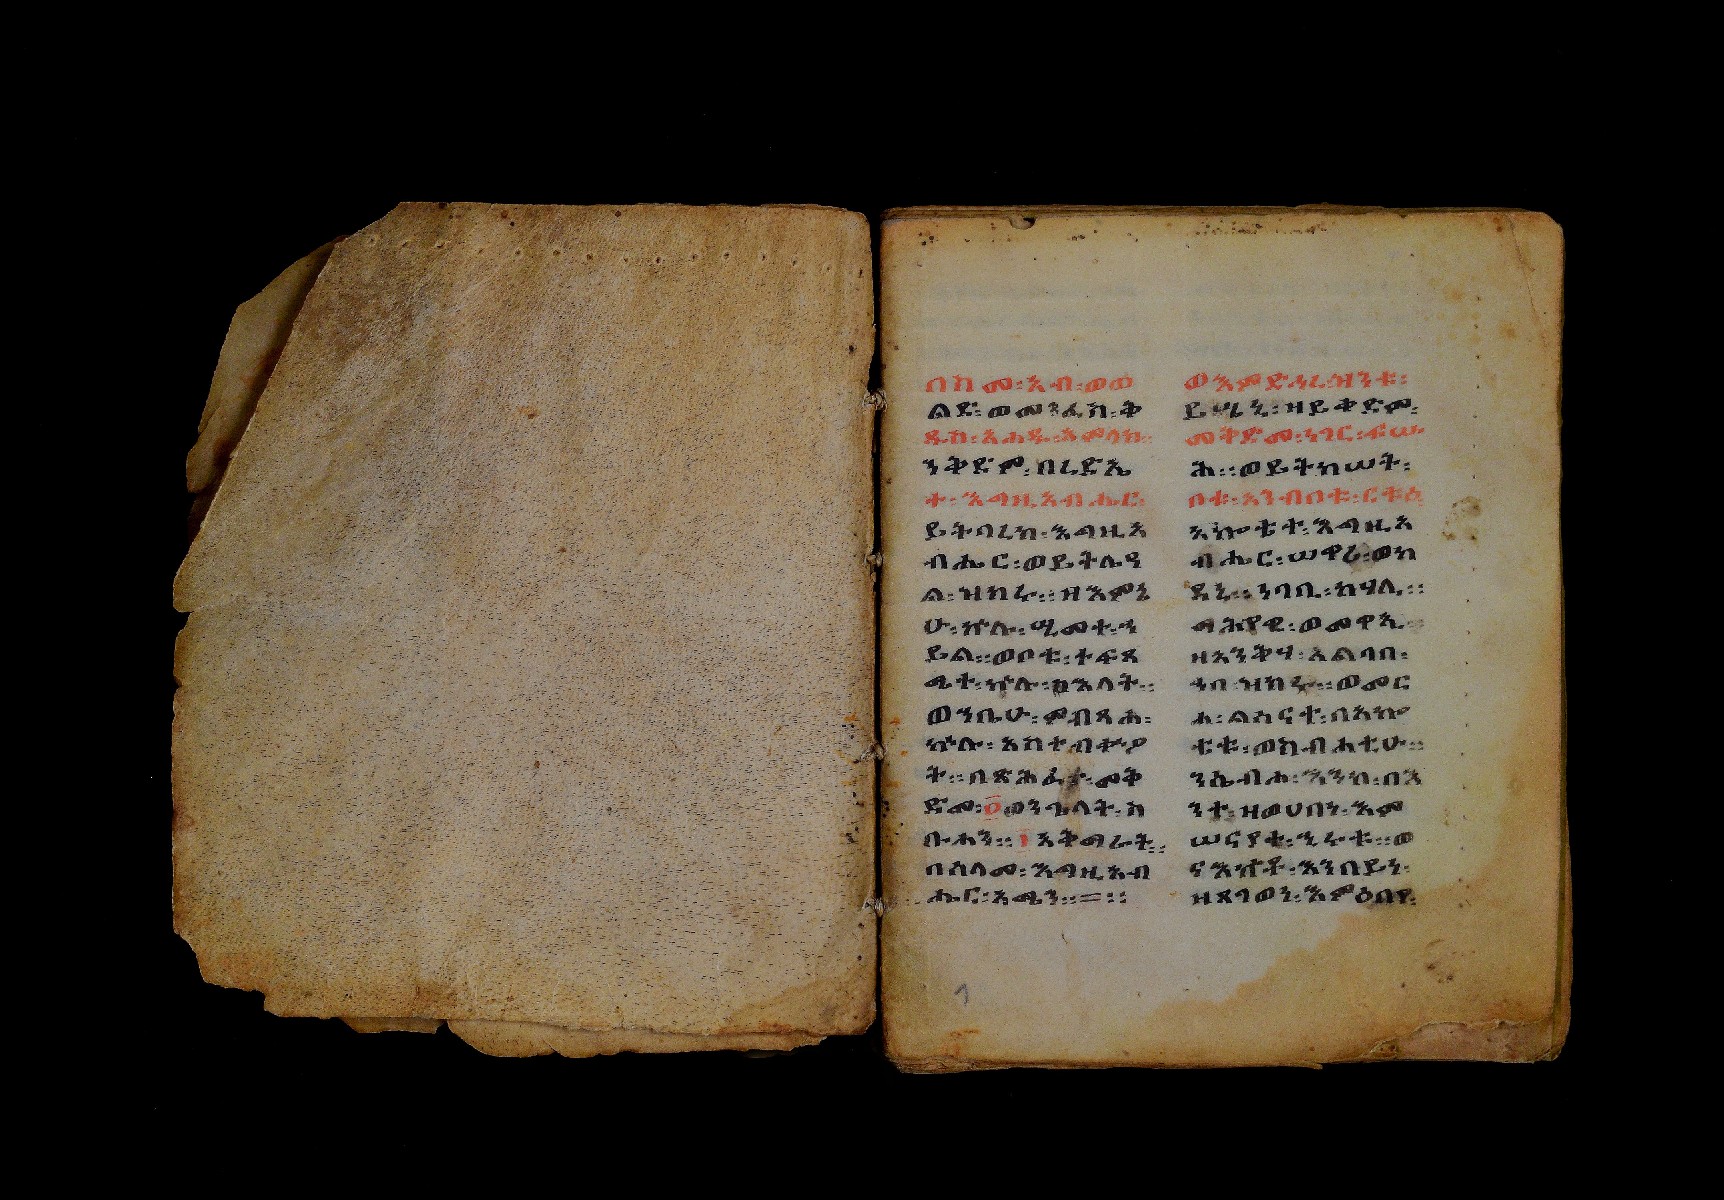 በስመ፡ አብ፡ ወወ
ልድ፡ ወመንፈስ፡ ቅ
ዱስ፡ ፩አምላክ፡
ንቅድም፡ በረድኤ
ተ፡ እግዚአብሔር፡
ይትባረክ፡ እግዚአ
ብሔር፡ ወይትሌዓ
ል፡ ዝክሩ። ዘእምኔ
ሁ፡ ኵሉ፡
ይል። ወቦቱ፡ ተፍጻ
ሜተ፡ ኵሉ፡
ወንቤሁ፡ ምብጻሕ፡
ኵሉ፡ አስተብቍዖ
ት። በጽሕፈተ፡ መቅ
ድመ፡ ፬ወንጌላት፡ ስ
ቡሓን።
በሰላመ፡ እግዚአብ
ሔር፡ አሜን።=።
ወእምድኅረዝንቱ፡
ይሜኒ፡ ዘይቀድም፡
መቅድመ፡ ነገር፡ ፍሡ
ሕ። ወይትከሠት፡
ቦቱ፡
አኰቴተ፡ እግዚአ
ብሔር፡ ሠዋሪ፡ ወከ
ዳኒ። ነባቢ፡ ከሃሊ።
ወመዋኢ፡
ዘአንቅሃ፡ አልባበ፡
ኀበ፡ ዝክሩ። ወመር
ሐ፡ ልሳናተ፡ በአኰ
ቴቱ፡ ወስብሐቲሁ።
ንሴብሖ፡ እንከ፡ በእ
ንተ፡ ዘወሀበነ፡ እም
ሠናያተ፡ ኂሩቱ። ወ
ናአኵቶ፡ እንበይነ፡
ዘጸገወነ፡ እምዕበየ፡